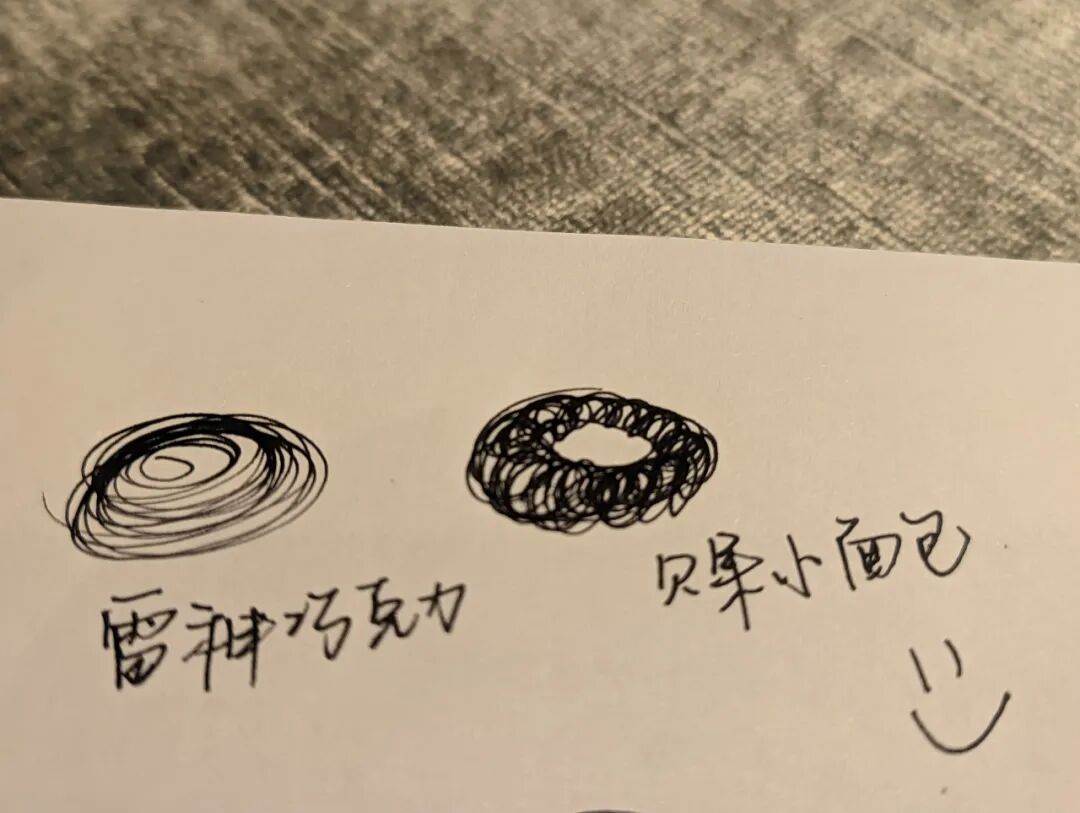 雷神巧克力
贝果小面包